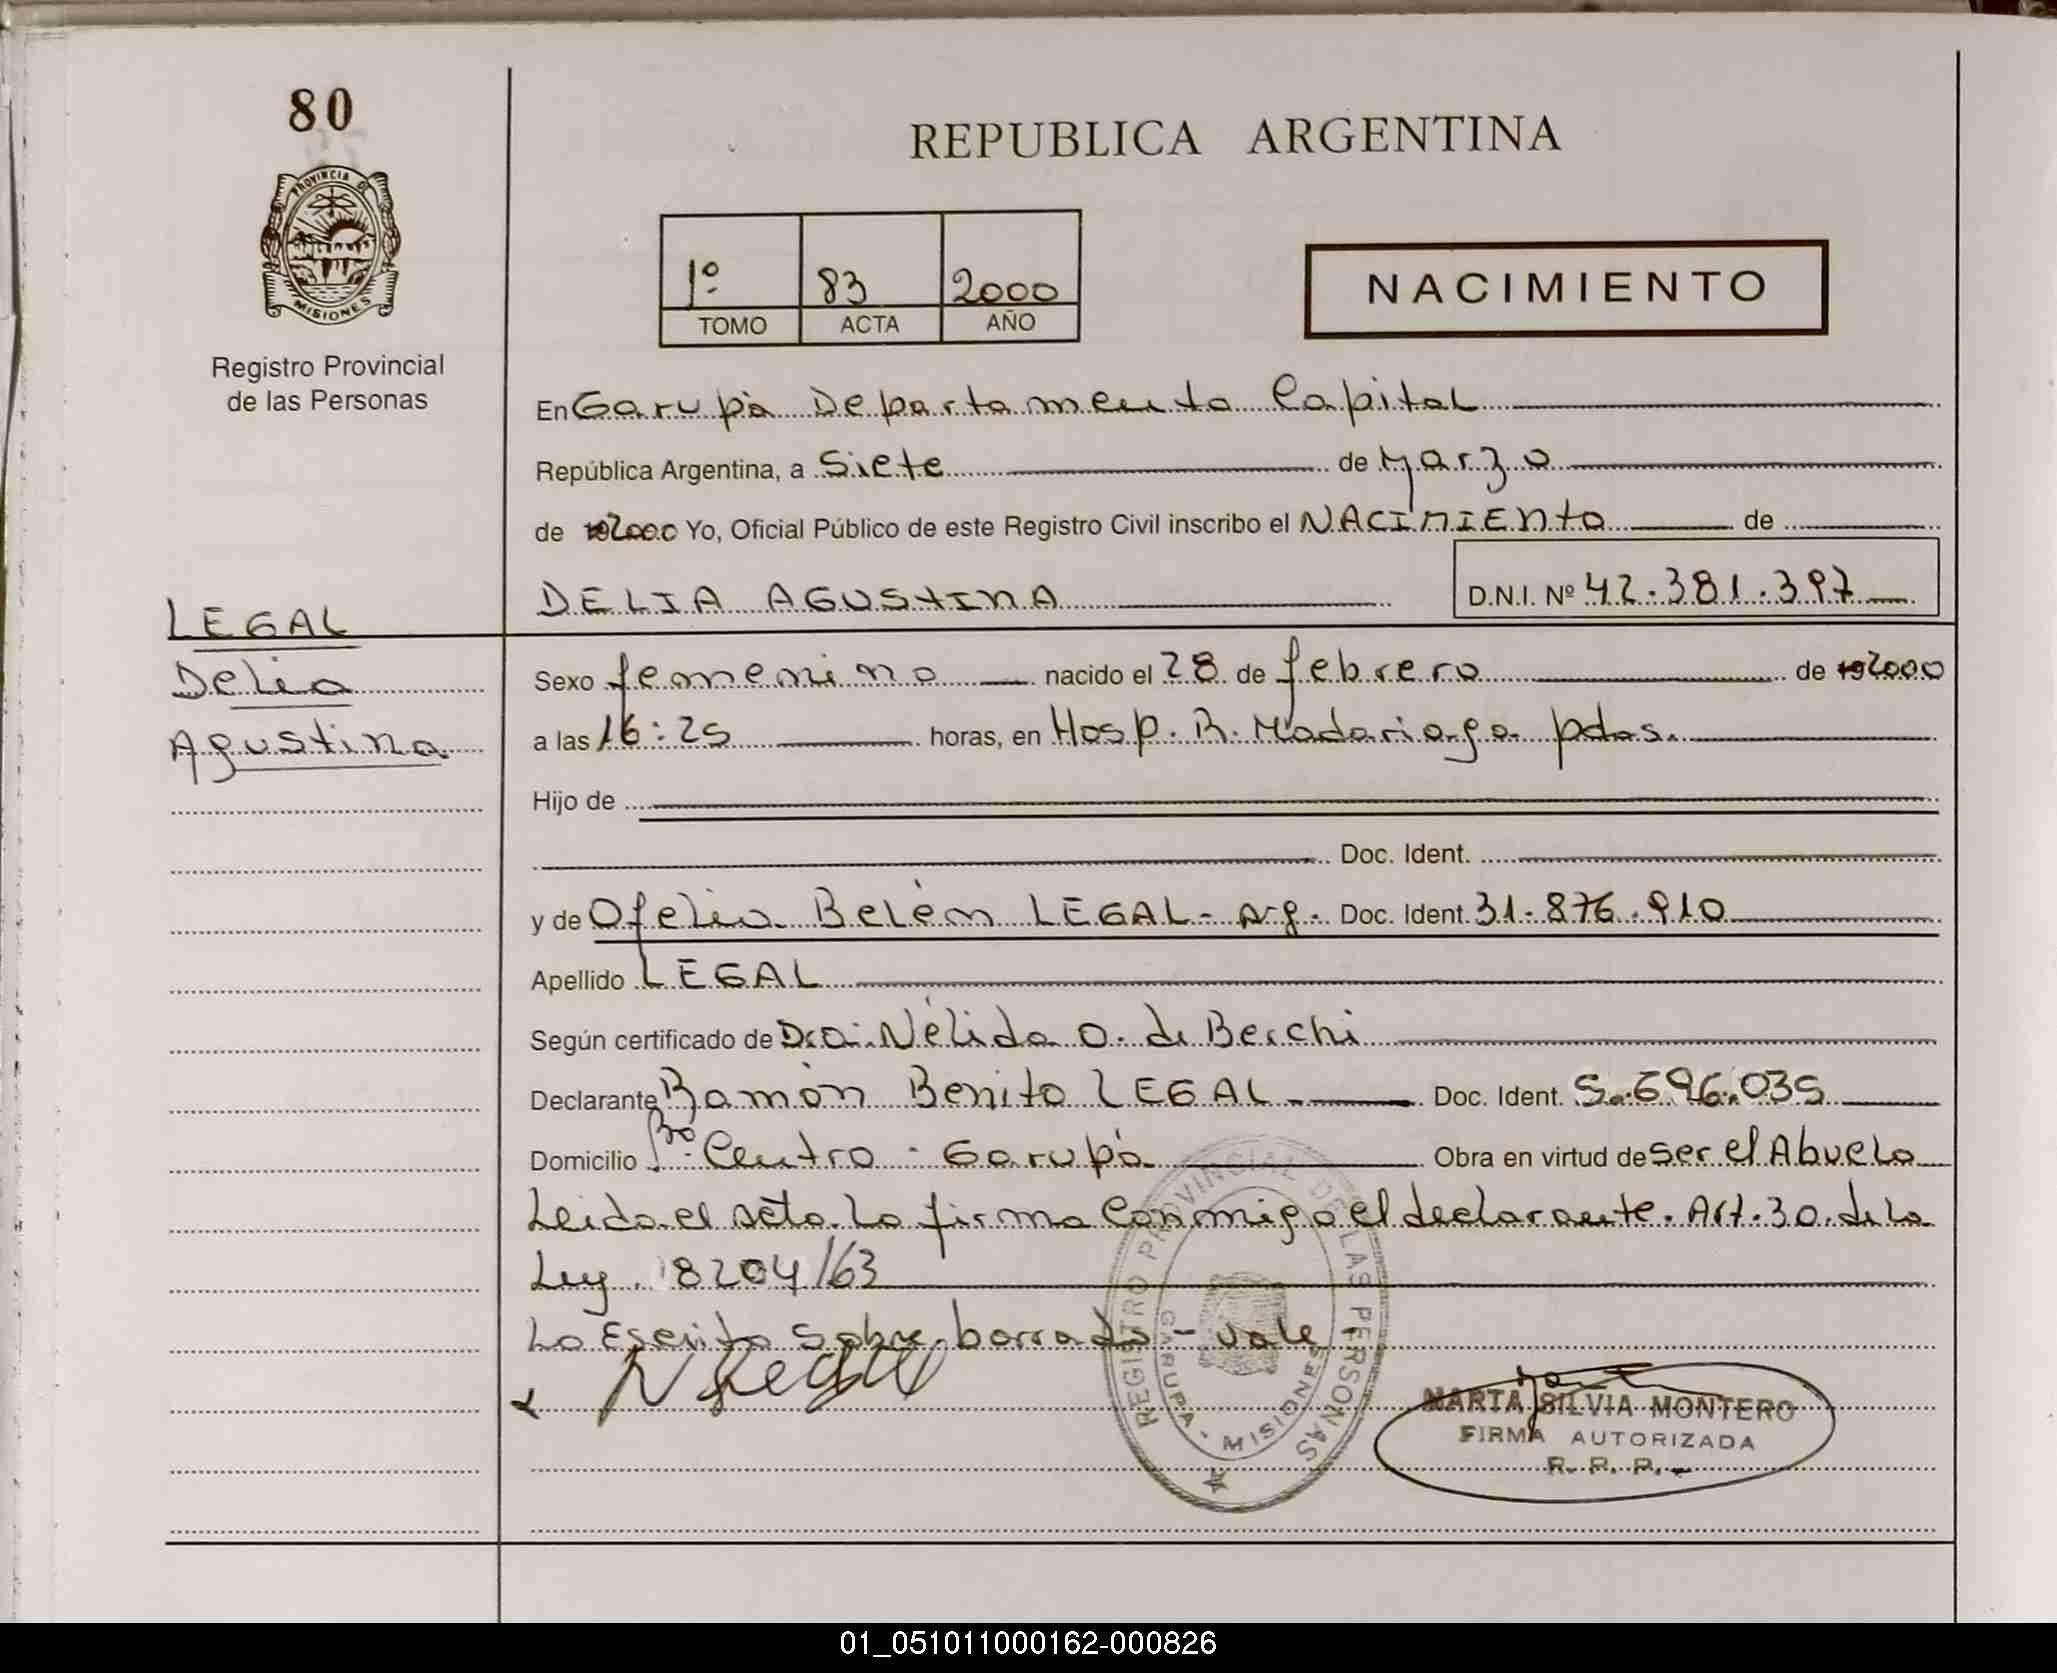 80
REPUBLICA ARGENTINA
PROVINCIA DE MISIONES
Registro Provincial
de las Personas
1º 83 2000
TOMO ACTA AÑO
NACIMIENTO
En Garupá Departamento Capital
República Argentina, a Siete de Marzo
de 192000 Yo, Oficial Público de este Registro Civil inscribo el NACIMIENTO de
DELIA AGUSTINA D.N.I. Nº 42.381.397
LEGAL
Delia
Agustina
Sexo femenino nacido el 28 de febrero de 192000
a las 16:25 horas, en Hosp. R. Madariaga pdas.
Hijo de
Doc. Ident.
y de Ofelia Belén LEGAL - Arg. Doc. Ident. 31.876.910
Apellido LEGAL
Según certificado de Dra. Nélida O. de Berchi
Declarante Ramón Benito LEGAL Doc. Ident. 5.696.035
Domicilio Bo. Centro - Garupá Obra en virtud de ser el Abuelo
Leida el acta. La firma conmigo el declarante. Art. 30 de la
Ley 18204/63
Lo Escrito Sobre borrado - vale
REGISTRO PROVINCIAL DE LAS PERSONAS
GARUPA - MISIONES
MARTA SILVIA MONTERO
FIRMA AUTORIZADA
R. P. P.
01_051011000162-000826